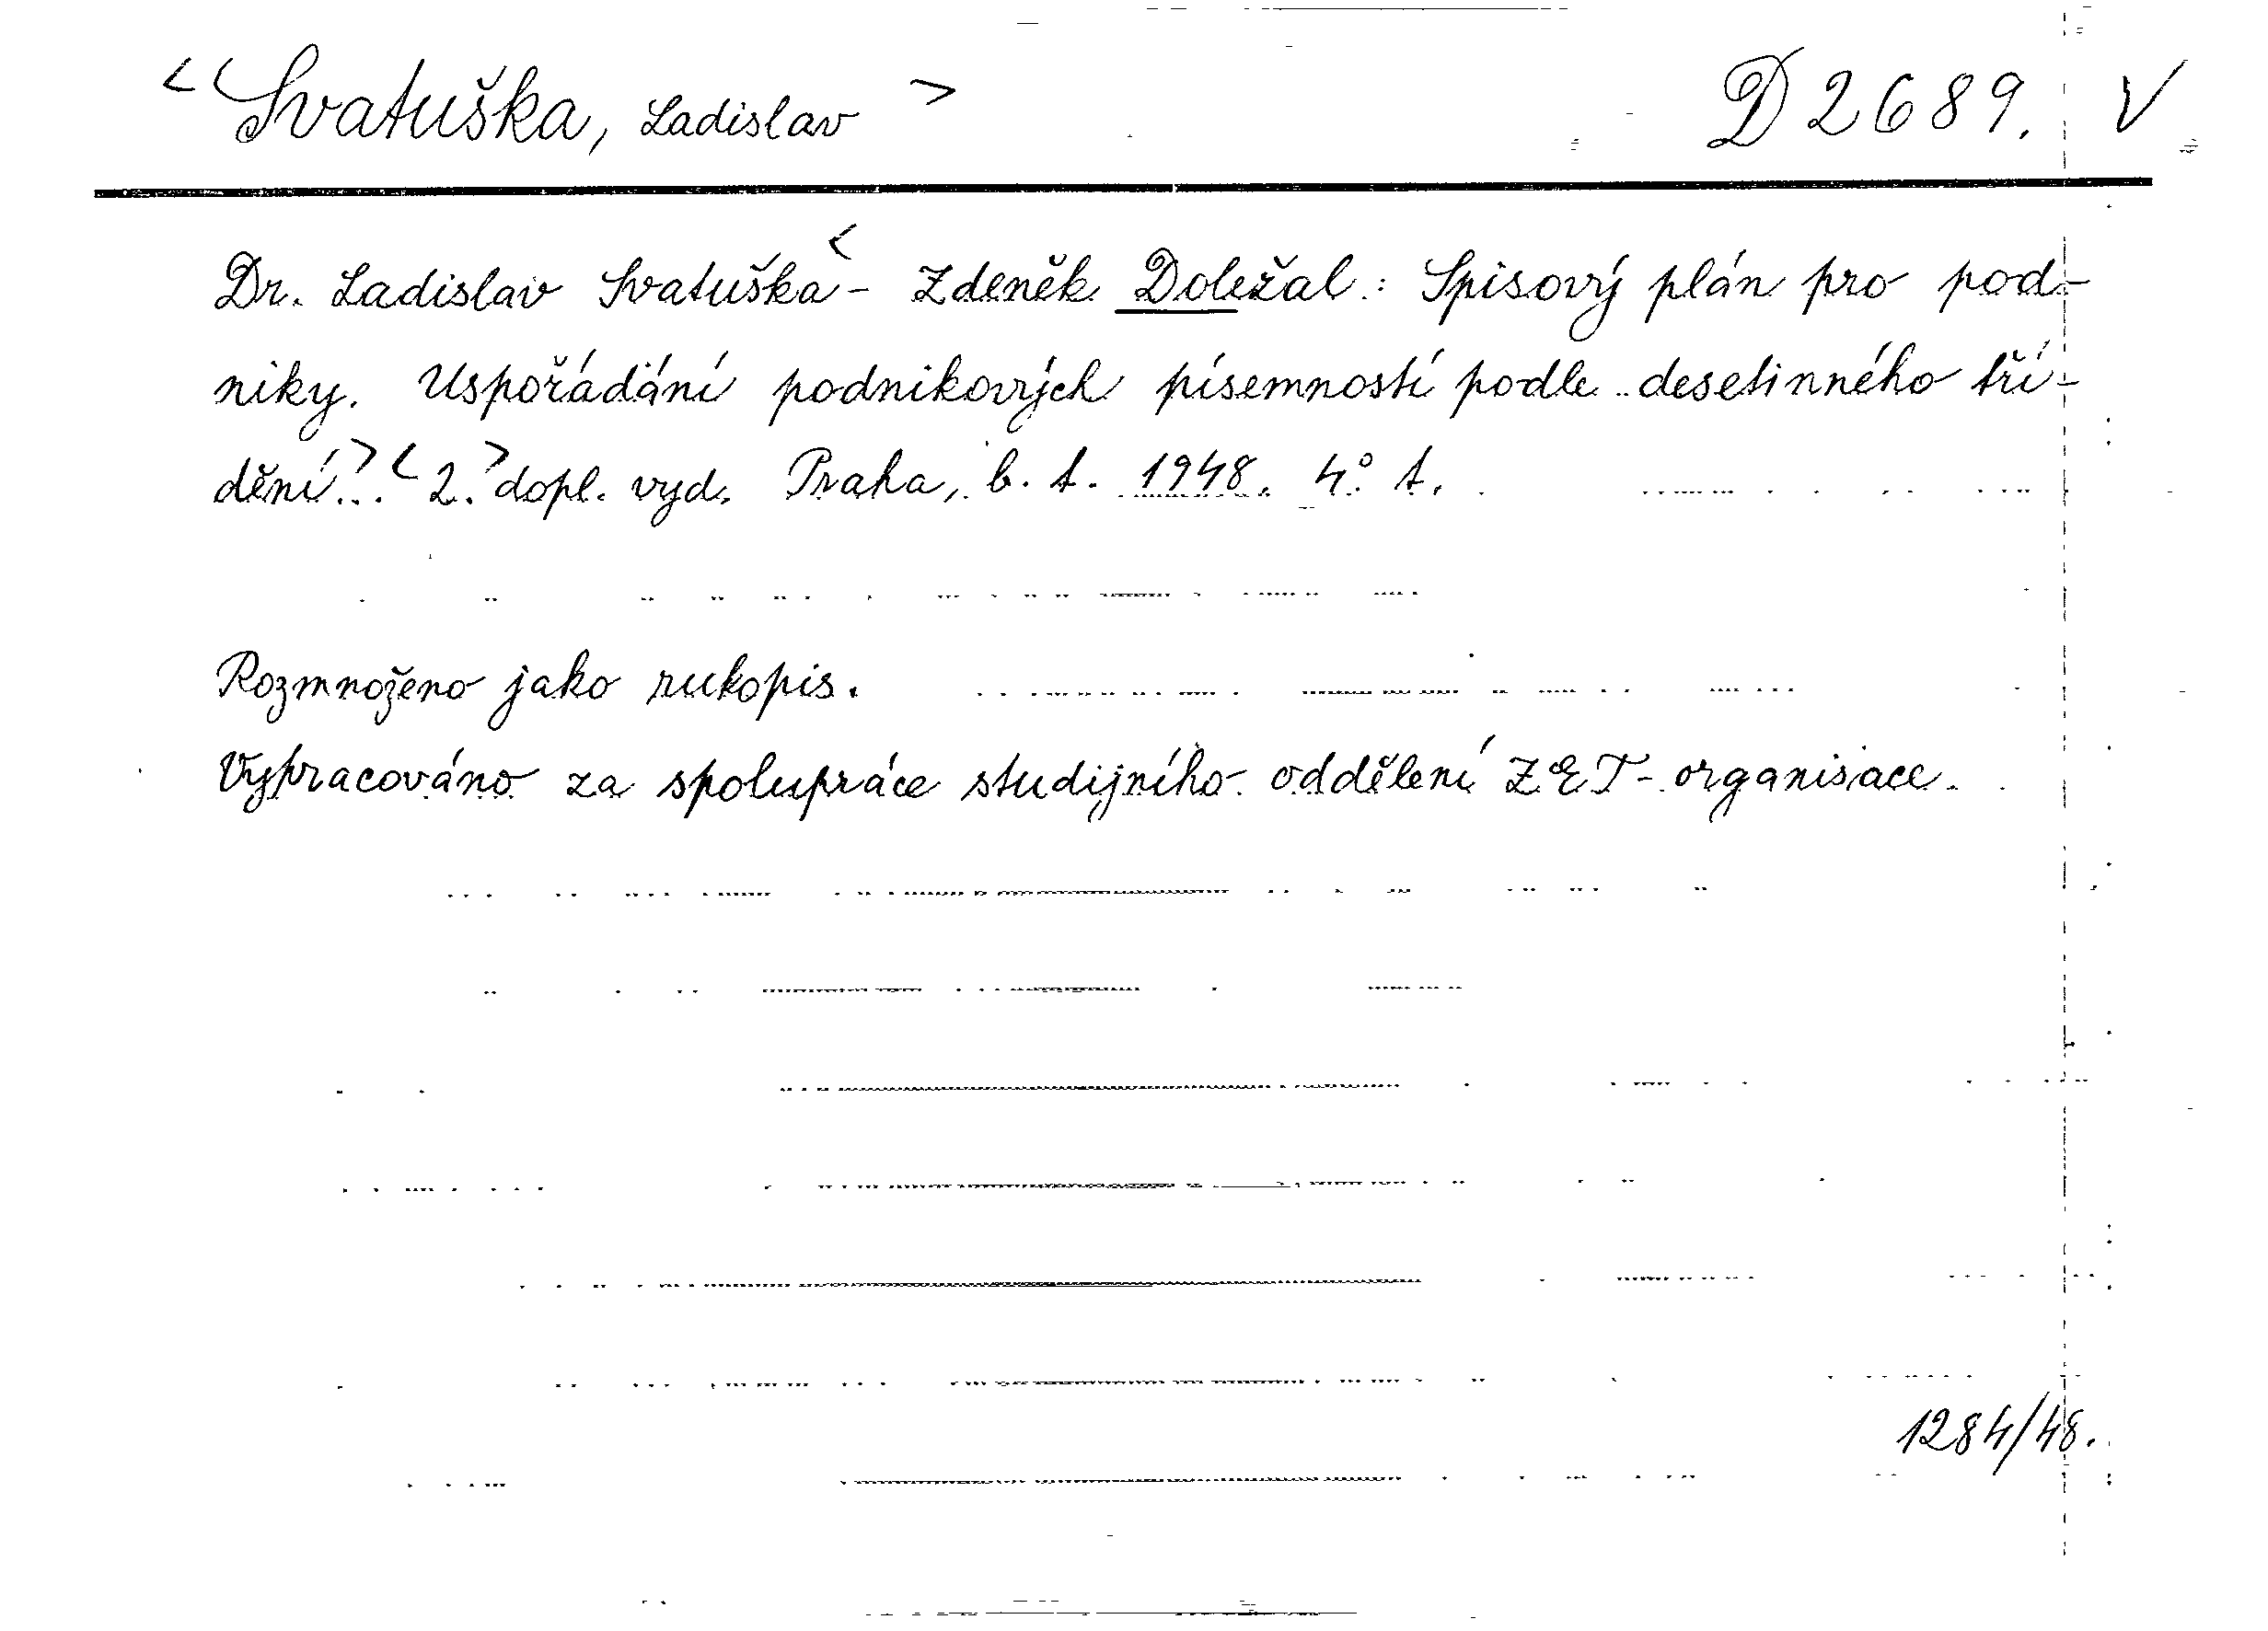 < Svatuška, Ladislav > D 2689. V
Dr. Ladislav Svatuška < - Zdeněk Doležal: Spisový plán pro pod-
niky. Uspořádání podnikových písemností podle desetinného tří-
dění... > < 2. > dopl. vyd. Praha, b. t. 1948. 4° t.
Rozmnoženo jako rukopis.
Vypracováno za spolupráce studijního oddělení ZET-organisace.
1284/48.